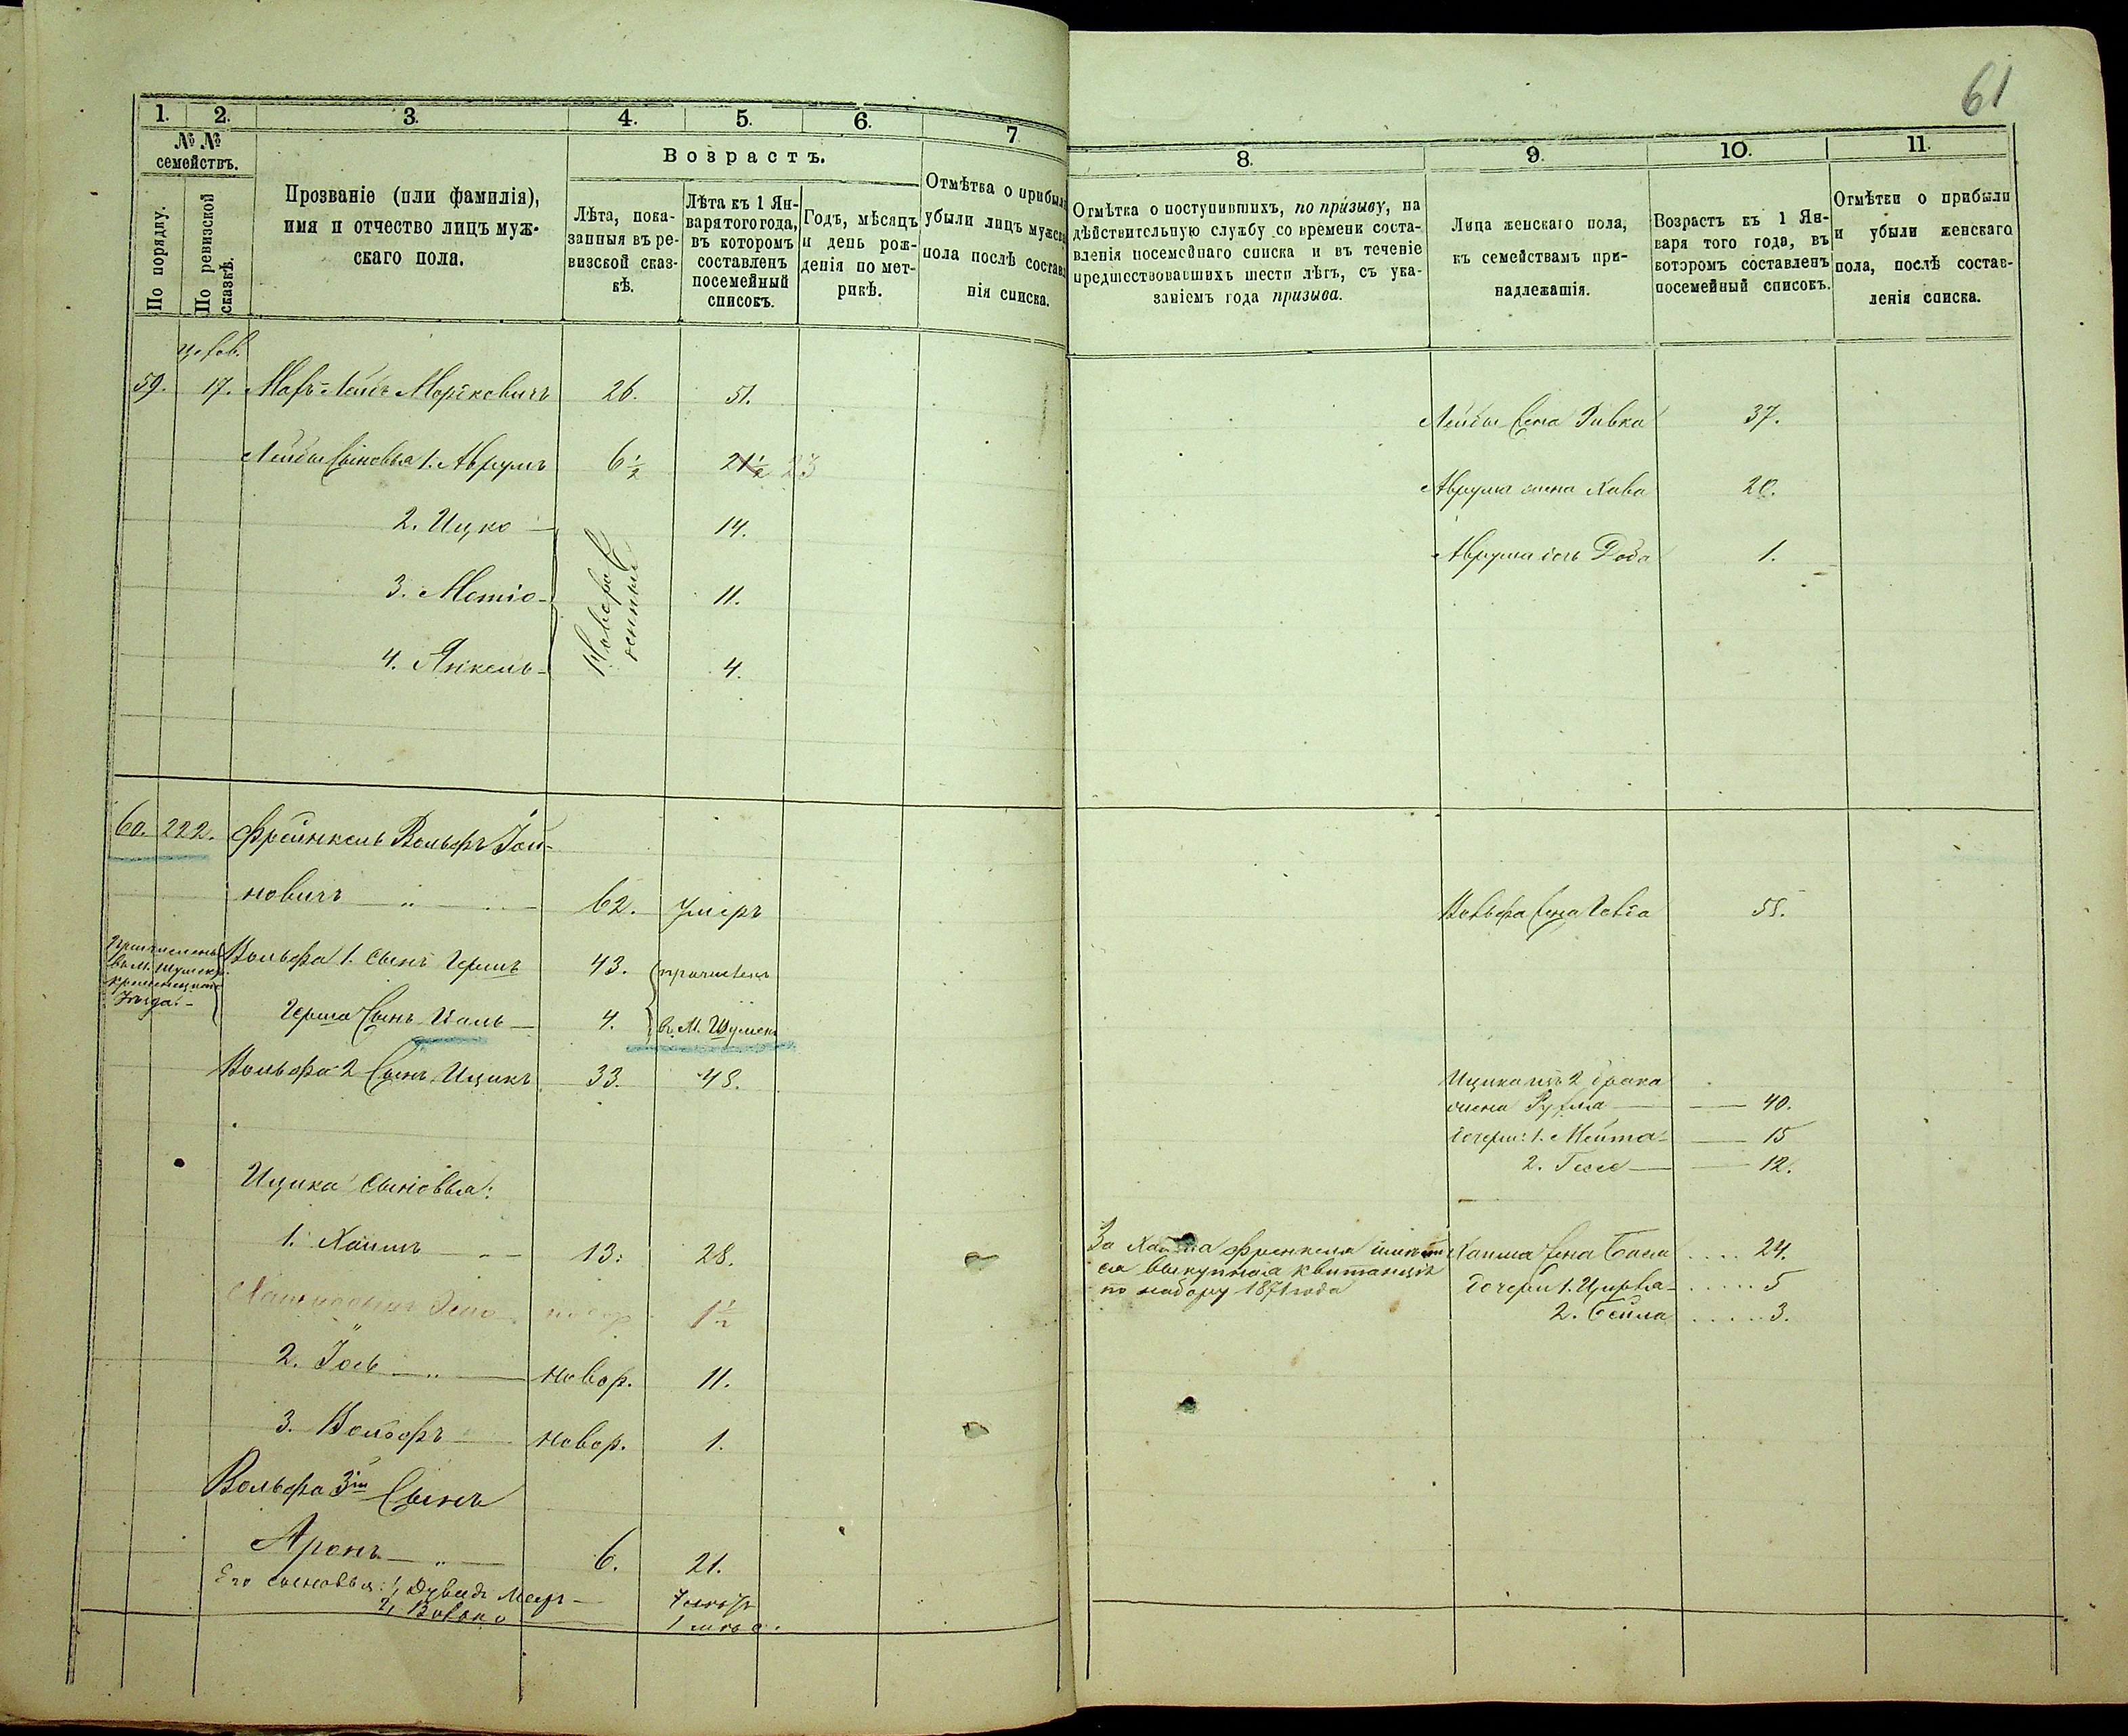 61
1. 2. 3. 4. 5. 6. 7
№ №
семействъ.
По порядку.
По ревизской сказкѣ.
Прозваніе (или фамилія),
имя и отчество лицъ муж-
скаго пола.
Возрастъ.
Лѣта, пока-
занныя въ ре-
визской сказ-
кѣ.
Лѣта къ 1 Ян-
варя того года,
въ которомъ
составленъ
посемейный
списокъ.
Годъ, мѣсяцъ
и день рож-
денія по мет-
рикѣ.
Отмѣтка о прибыли
убыли лицъ мужск
пола послѣ составл
нія списка.
8. 9. 10. 11.
Отмѣтка о поступившихъ, по призыву, на
дѣйствительную службу со времени соста-
вленія посемейнаго списка и въ теченіе
предшествовавшихъ шести лѣтъ, съ ука-
заніемъ года призыва.
Лица женскаго пола,
къ семействамъ при-
надлежащія.
Возрастъ къ 1 Ян-
варя того года, въ
которомъ составленъ
посемейный списокъ.
Отмѣтки о прибыли
и убыли женскаго
пола, послѣ состав-
ленія списка.
59. 17. Лейбъ Морковичъ 26. 51.
Лейбы жена Ривка 37.
Лейбы Сыновья 1. Аврумъ 6½ 21½ 23
Аврума жена Хава 20.
2. Ицко 14.
Аврума дочь 1.
3. 11.
4. Янкель 4.
Новорожденные
60. 222. Фрейнкель Вольфъ Іой-
новичъ 62. умеръ
Вольфа жена 55.
Вольфа 1. сынъ Герша 43. причисленъ
Герша Сынъ 4. в М. Шумскъ
Причисленъ
в м. Шумскъ
кременецкаго
уѣзда.
Вольфа 2 Сынъ Ицикъ 33. 48.
Ицика изъ 2 брака
жена 40.
дочери: 1. 15
2. 12.
Ицика сыновья:
1. Хаимъ 13. 28.
За Хаима Френкеля
выкупная квитанція
по набору 1871 года
Хаима жена Бася 24.
дочери 1. 5
2. Бейла 3.
1½
2. Іось Новор. 11.
3. Вольфъ Новор. 1.
Вольфа 3й Сынъ
Аронъ 6. 21.
Его сыновья: 1, Меер
2,